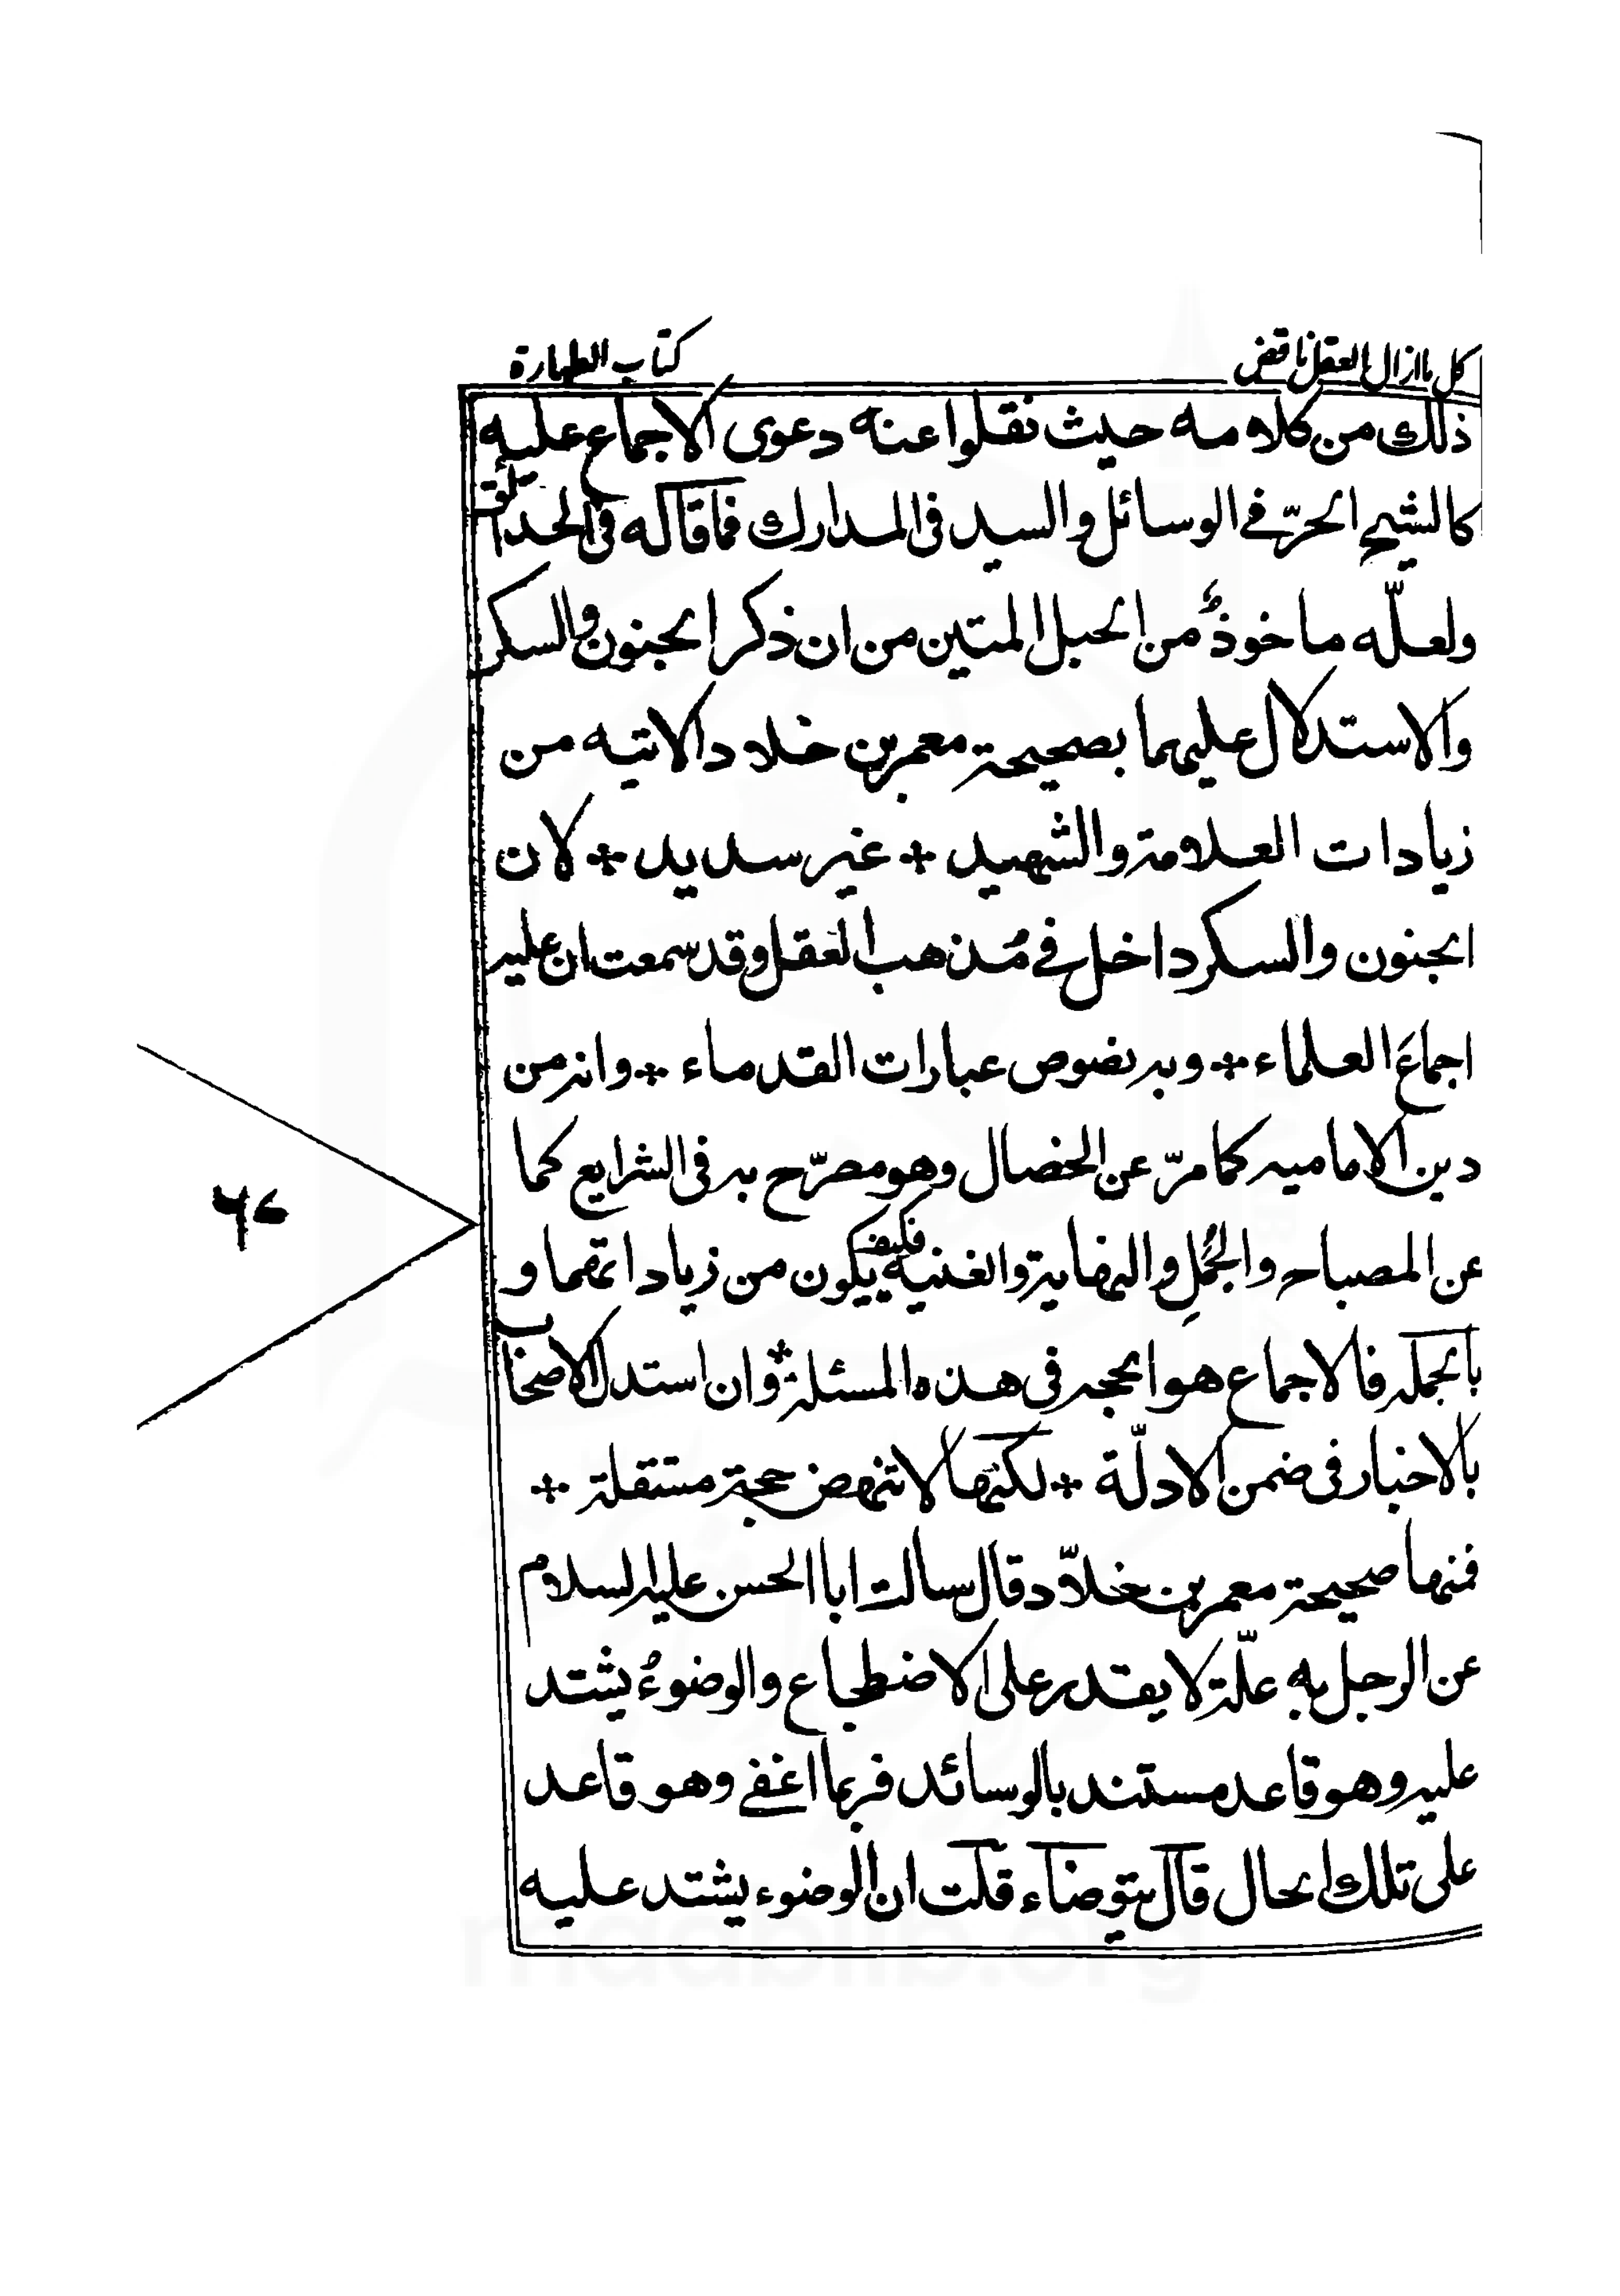 كل ما ازال العقل ناقض
كتاب الطهارة
ذلك من كلامه حيث نقلوا عنه دعوى الاجماع عليه
كالشيخ الحرّ في الوسائل والسيد فى المدارك فما قاله فى الحدائق
ولعلّه ماخوذٌ من الحبل المتين من ان ذكر الجنون والسكر
والاستدلال عليهما بصحيحة معمر بن خلاد الاتيه من
زيادات العلامة والشهيد * غير سديد * لان
الجنون والسكر داخل في مُذهب العقل وقد سمعت ان عليه
اجماعَ العلماء * وبه نصوص عبارات القدماء * وانه من
دين الاماميه كما مرّ عن الخصال وهو مصرّح به فى الشرايع كما
عن المصباح والجُمَلِ والنهاية والغنيه فكيف يكون من زياداتهما و
بالجمله فالاجماع هو الحجه فى هذه المسئلة * وان استدل الاصحاب
بالاخبار فى ضمن الادلّة * لكنها لا تنهض حجة مستقلة *
فمنها صحيحة معمر بن خلّاد قال سالت ابا الحسن عليه السلام
عن الرجل به علّة لا يقدر على الاضطجاع والوضوءُ يشتد
عليه وهو قاعد مستند بالوسائد فربما اغفى وهو قاعد
على تلك الحال قال يتوضاء قلت ان الوضوء يشتد عليه
٦٧
maablib.org